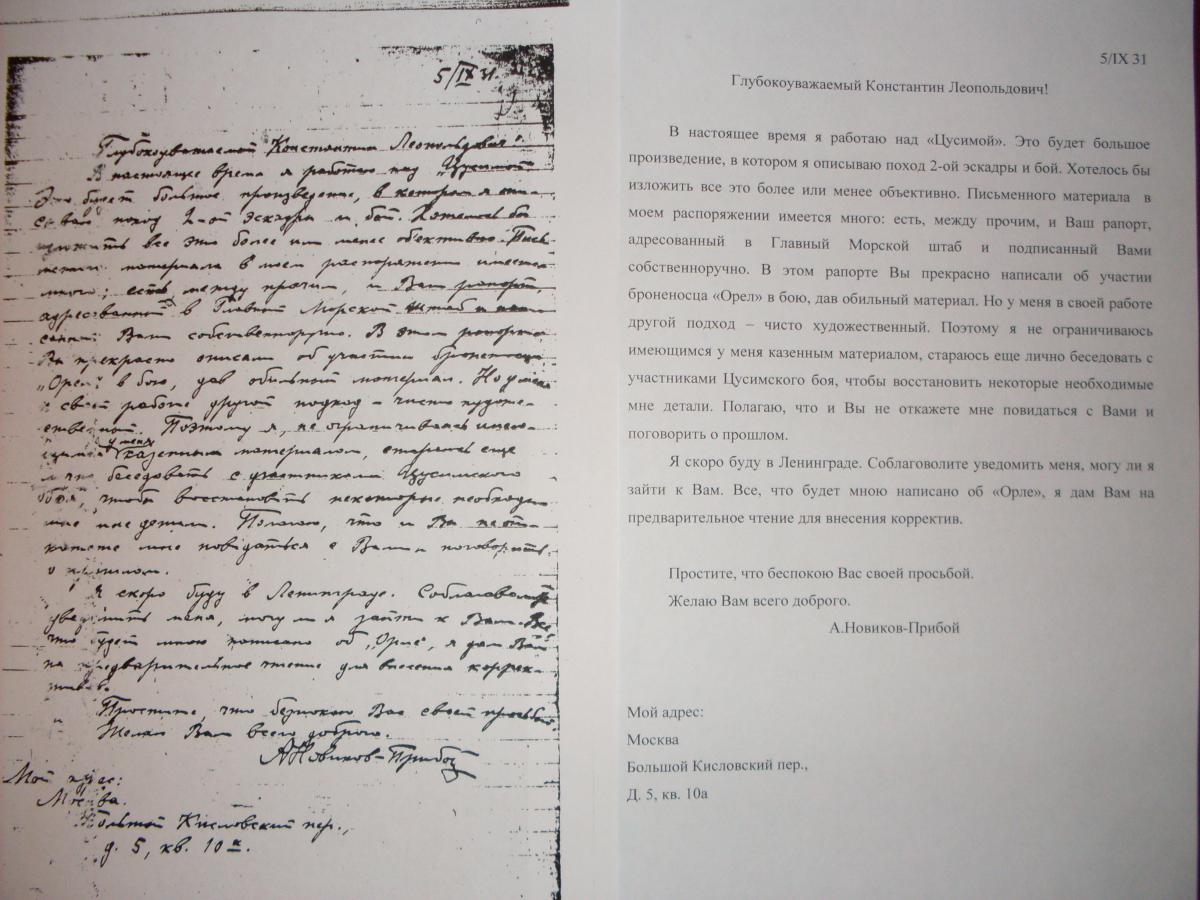 5/IX 31.
Глубокоуважаемый Константин Леопольдович!
В настоящее время я работаю над „Цусимой“.
Это будет большое произведение, в котором я опи-
сываю поход 2-ой эскадры и бой. Хотелось бы
изложить все это более или менее объективно. Пись-
менного материала в моем распоряжении имеется
много; есть между прочим, и Ваш рапорт,
адресованный в Главный Морской штаб и подпи-
санный Вами собственноручно. В этом рапорте
Вы прекрасно описали об участии броненосца
„Орел“ в бою, дав обильный материал. Но у меня
в своей работе другой подход – чисто художе-
ственный. Поэтому я, не ограничиваясь имею-
щимся у меня казенным материалом, стараюсь еще
лично беседовать с участниками Цусимского
боя, чтобы восстановить некоторые необходи-
мые мне детали. Полагаю, что и Вы не от-
кажете мне повидаться с Вами и поговорить
о прошлом.
Я скоро буду в Ленинграде. Соблаговолите
уведомить меня, могу ли я зайти к Вам. Все
что будет мною написано об „Орле“, я дам Вам
на предварительное чтение для внесения коррек-
тив.
Простите, что беспокою Вас своей просьбой.
Желаю Вам всего доброго.
А.Новиков-Прибой
Мой адрес:
Москва.
Большой Кисловский пер.,
д. 5, кв. 10а.
5/IX 31
Глубокоуважаемый Константин Леопольдович!
В настоящее время я работаю над «Цусимой». Это будет большое
произведение, в котором я описываю поход 2-ой эскадры и бой. Хотелось бы
изложить все это более или менее объективно. Письменного материала в
моем распоряжении имеется много: есть, между прочим, и Ваш рапорт,
адресованный в Главный Морской штаб и подписанный Вами
собственноручно. В этом рапорте Вы прекрасно написали об участии
броненосца «Орел» в бою, дав обильный материал. Но у меня в своей работе
другой подход – чисто художественный. Поэтому я не ограничиваюсь
имеющимся у меня казенным материалом, стараюсь еще лично беседовать с
участниками Цусимского боя, чтобы восстановить некоторые необходимые
мне детали. Полагаю, что и Вы не откажете мне повидаться с Вами и
поговорить о прошлом.
Я скоро буду в Ленинграде. Соблаговолите уведомить меня, могу ли я
зайти к Вам. Все, что будет мною написано об «Орле», я дам Вам на
предварительное чтение для внесения корректив.
Простите, что беспокою Вас своей просьбой.
Желаю Вам всего доброго.
А.Новиков-Прибой
Мой адрес:
Москва
Большой Кисловский пер.,
Д. 5, кв. 10а